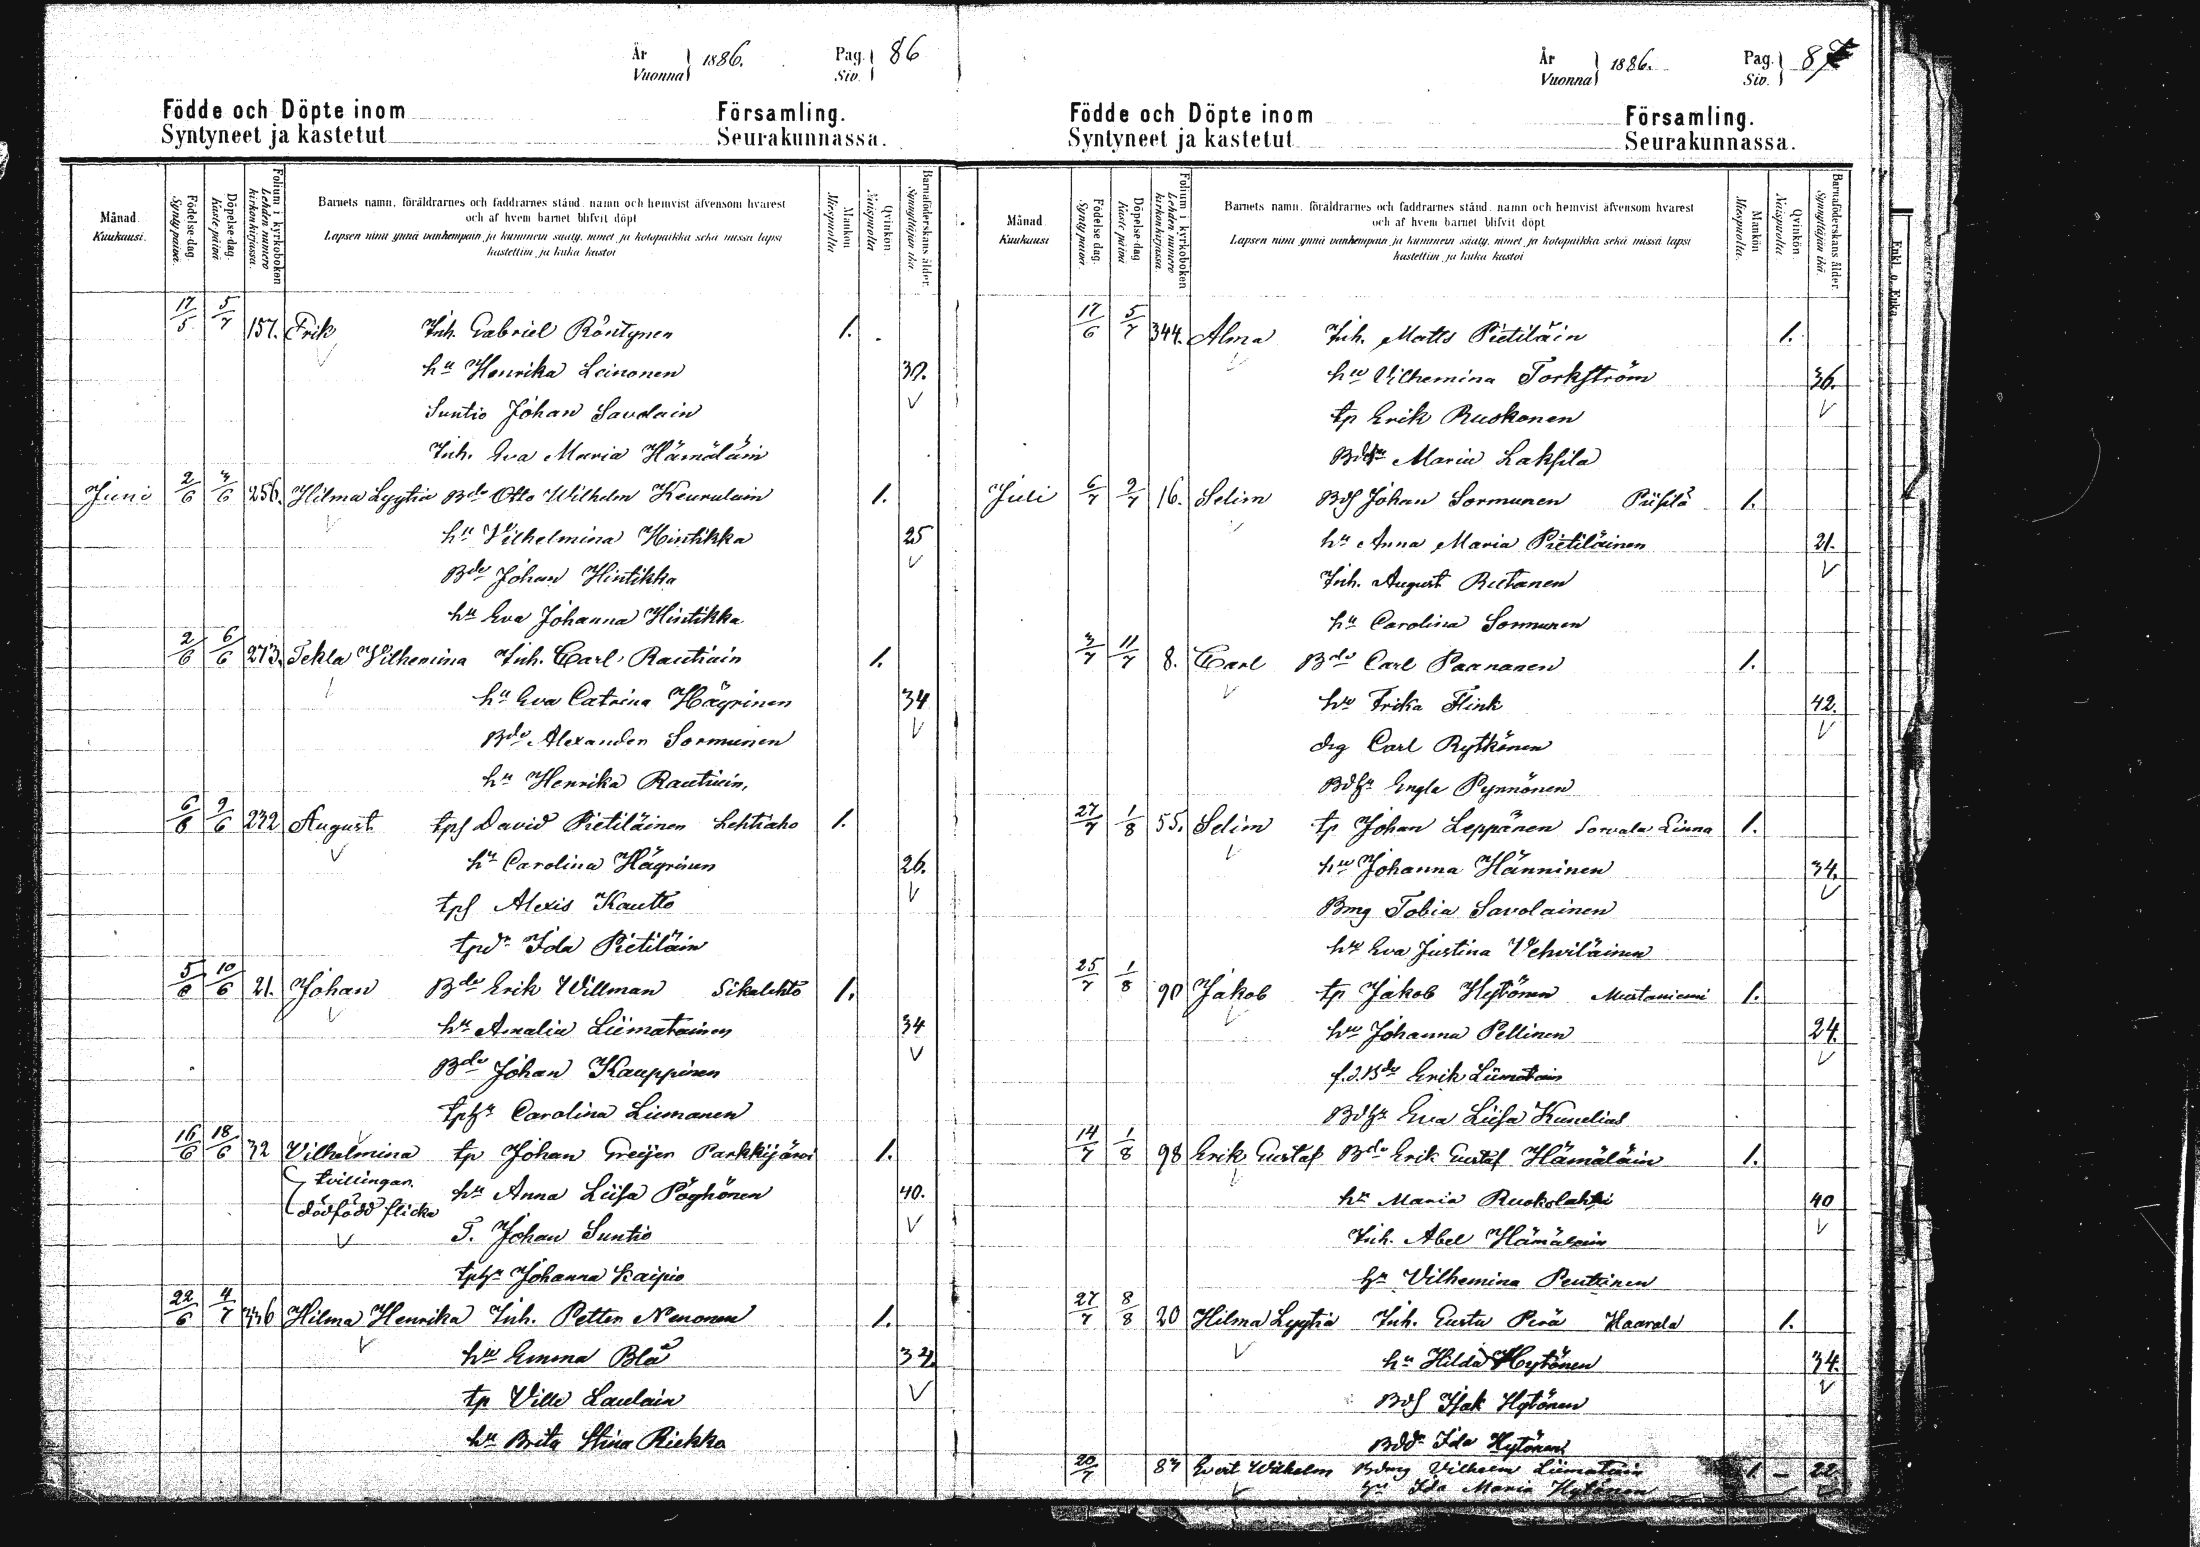 År
Vuonna } 1886. Pag.
Siv. } 86
Födde och Döpte inom Församling.
Syntyneet ja kastetut Seurakunnassa.
Månad.
Kuukausi.
Födelse-dag.
Synty päivä.
Döpelse-dag.
Kaste-päivä
Folium i kyrkoboken
Lehden numero
kirkonkirjassa.
Barnets namn, föräldrarnes och faddrarnes stånd, namn och hemvist äfvensom hvarest
och af hvem barnet blifvit döpt
Lapsen nimi ynnä vanhempain ja kummein sääty, nimet ja kotopaikka sekä missä lapsi
kastettiin ja kuka kastoi
Mankön
Miespuolta
Qvinkön.
Naispuolta
Barnaföderskans ålder.
Synnyttäjän ikä.
17/5 5/7 157. Erik Inh. Gabriel Röntynen 1.
hu Henrika Leinonen 37.
Suntio Johan Savolain
Inh. Eva Maria Hämäläin
Juni 2/6 4/6 256. Hilma Lyytia Bde Otto Wilhelm Keurulain 1.
hu Vilhelmina Hintikka 25
Bde Johan Hintikka
hu Eva Johanna Hintikka
2/6 6/6 273. Tekla Vilhemina Inh. Carl Rautiain 1.
hu Eva Catrina Häyrinen 34
Bde Alexander Sormunen
hu Henrika Rautiain,
6/6 9/6 232 August tps David Pietiläinen Lehtiaho 1.
hu Carolina Häyrinen 26.
tps Alexis Kautto
tpdr Ida Pietiläin
5/6 10/6 21. Johan Bde Erik Willman Sikalehto 1.
hu Amalia Liimatainen 34
Bde Johan Kauppinen
tphu Carolina Liimanen
16/6 18/6 32 Vilhelmina tp Johan Greijer Parkkijärvi 1.
tvillingar,
dödfödd flicka hu Anna Liisa Pöyhönen 40.
T. Johan Suntio
tphu Johanna Kaipio
22/6 4/7 336 Hilma Henrika Inh. Petter Nenonen 1.
hu Emma Blå 34.
tp Ville Laulain
hu Brita Stina Riekko
År
Vuonna } 1886. Pag.
Siv. } 87
Födde och Döpte inom Församling.
Syntyneet ja kastetut Seurakunnassa.
Månad
Kuukausi
Födelse dag.
Synty päivä.
Döpelse-dag
Kaste päivä
Folium i kyrkoboken
Lehden numero
kirkonkirjassa.
Barnets namn, föräldrarnes och faddrarnes stånd, namn och hemvist äfvensom hvarest
och af hvem barnet blifvit döpt
Lapsen nimi ynnä vanhempain ja kummein sääty, nimet ja kotopaikka sekä missä lapsi
kastettiin ja kuka kastoi
Mankön
Miespuolta.
Qvinkön
Naispuolta
Barnaföderskans ålder.
Synnyttäjän ikä.
17/6 5/7 344. Alma Inh. Matts Pietiläin 1.
hu Vilhemina Torkström 36.
tp Erik Ruokonen
Bdhu Maria Laksila
Juli 6/7 9/7 16. Selim Bds Johan Sormunen Piisilä 1.
hu Anna Maria Pietiläinen 21.
Inh. August Rutanen
hu Carolina Sormunen
3/7 11/7 8. Carl Bde Carl Paananen 1.
hu Frika Flink 42.
drg Carl Rytkönen
Bdhu Engla Pynnönen
27/7 1/8 55. Selim tp Johan Leppänen Sorvala Linna 1.
hu Johanna Hänninen 34.
Bmg Tobia Savolainen
hu Eva Justina Vehviläinen
25/7 1/8 90 Jakob tp Jakob Hytönen Mustaniemi 1.
hu Johanna Pellinen 24.
f.d. Bde Erik Liimatain
Bdhu Eva Liisa Kunelias
14/7 1/8 98 Erik Gustaf Bde Erik Gustaf Hämäläin 1.
hu Maria Ruokolahti 40
Inh. Abel Hämäläin
hu Vilhemina Pentinen
27/7 8/8 20 Hilma Lyytia Inh. Gusta Perä Haarala 1.
hu Hilda Hytönen 34.
Bds Isak Hytönen
Bddr Ida Hytönen
20/7 83 Evert Wilhelm Bdmg Vilhelm Liimatain 1. – 22.
hu Ida Maria Hytönen